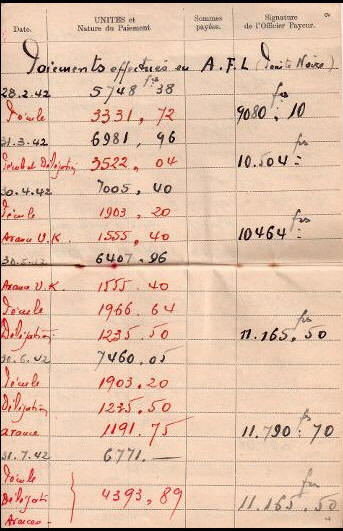 Date.
UNITÉS et
Nature du Paiement
Sommes
payées.
Signature
de l'Officier Payeur.
Paiements effectués en A.F.L (Pointe Noire)
28.2.42 5748 frs 38
3331, 72 9080, 10 frs
31.3.42 6981, 96
et Délégation 3522, 04 10.504 frs
30.4.42 7005, 40
1903, 20
Avance U.K. 1555, 40 10464 frs
6407.96
Avance U.K. 1555.40
1966.64
Délégation 1235.50 11.165,50 frs
30.6.42 7460.05
1903.20
Délégation 1235.50
avance 1191.75 11.790,70 frs
31.7.42 6771.—
Délégati 4393,89 11.165,50 frs
Avances